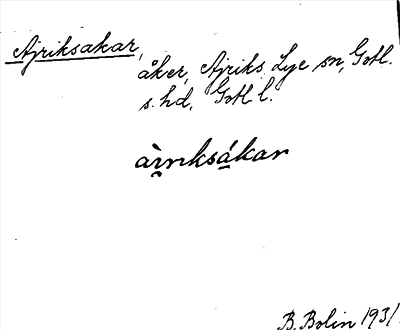 Ajriksakar,
åker, Ajriks Lye sn, Gotl.
s. hd, Gotl l.
àı̯rıksákar
B. Bolin 1931.